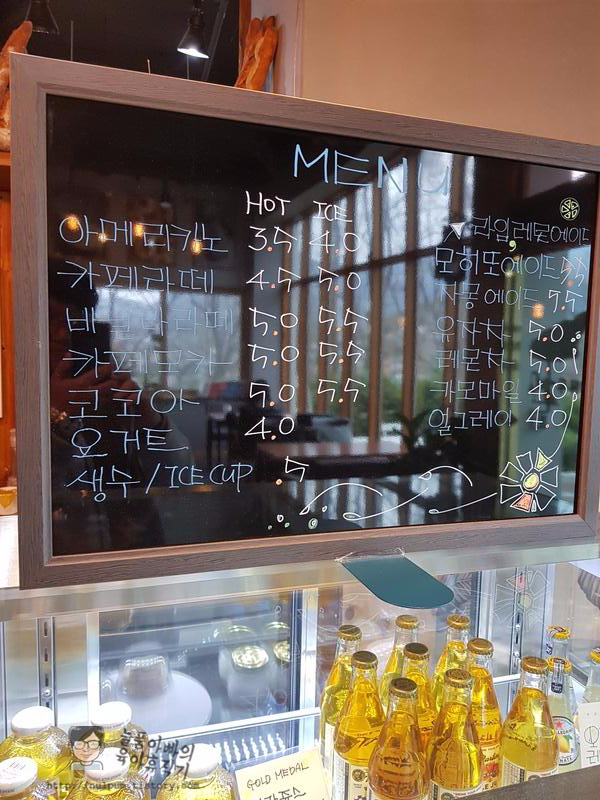 MENU
HOT ICE
아메리카노 3.5 4.0
카페라떼 4.5 5.0
바닐라라떼 5.0 5.5
카페모카 5.0 5.5
코코아 5.0 5.5
요거트 4.0
생수 / ICE CUP .5
라임,레몬에이드
모히또에이드 5.5
자몽에이드 5.5
유자차 5.0
레몬차 5.0
카모마일 4.0
얼그레이 4.0
GOLD MEDAL
육아휴직기